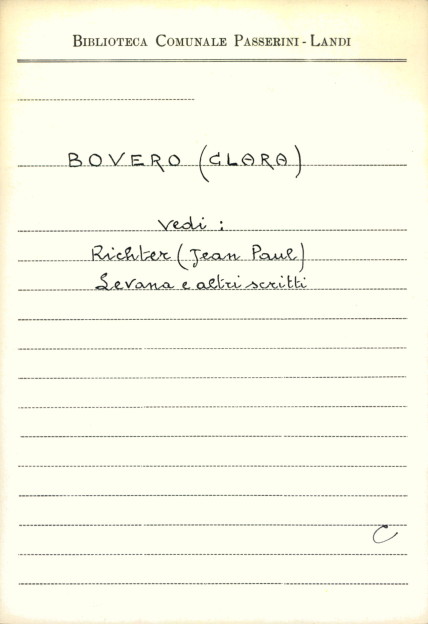 BIBLIOTECA COMUNALE PASSERINI - LANDI
BOVERO (CLARA)
Vedi :
Richter (Jean Paul)
Levana e altri scritti
C